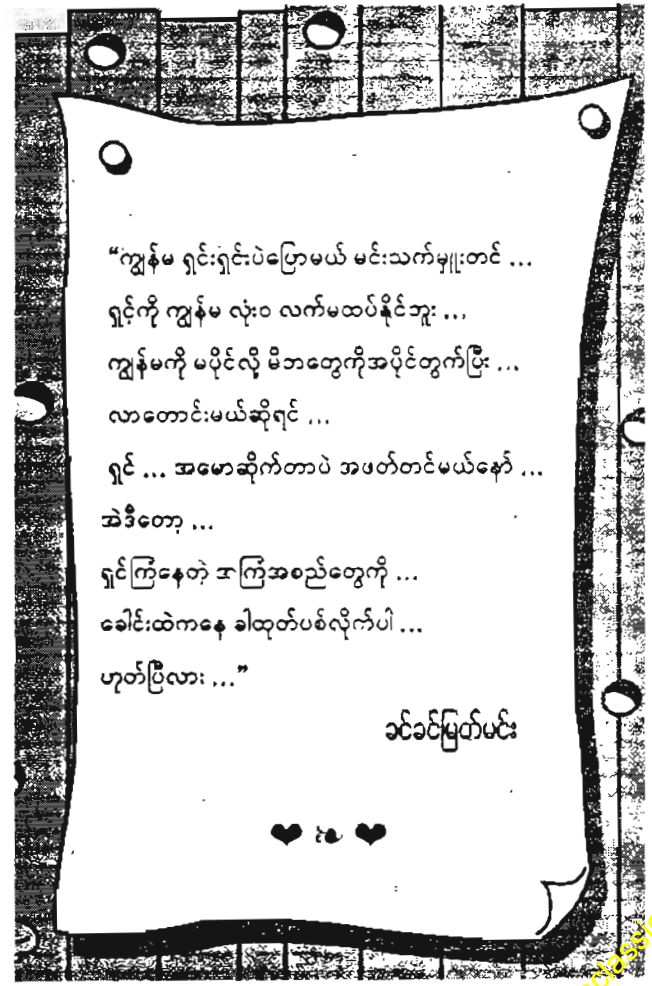 “ကျွန်မ ရှင်းရှင်းပဲပြောမယ် မင်းသက်မှူးတင် ...
ရှင့်ကို ကျွန်မ လုံးဝ လက်မထပ်နိုင်ဘူး ...
ကျွန်မကို မပိုင်လို့ မိဘတွေကိုအပိုင်တွက်ပြီး ...
လာတောင်းမယ်ဆိုရင် ...
ရှင် ... အမောဆိုက်တာပဲ အဖတ်တင်မယ်နော် ...
အဲဒီတော့ ...
ရှင်ကြံနေတဲ့ အကြံအစည်တွေကို ...
ခေါင်းထဲကနေ ခါထုတ်ပစ်လိုက်ပါ ...
ဟုတ်ပြီလား ...”
ခင်ခင်မြတ်မင်း